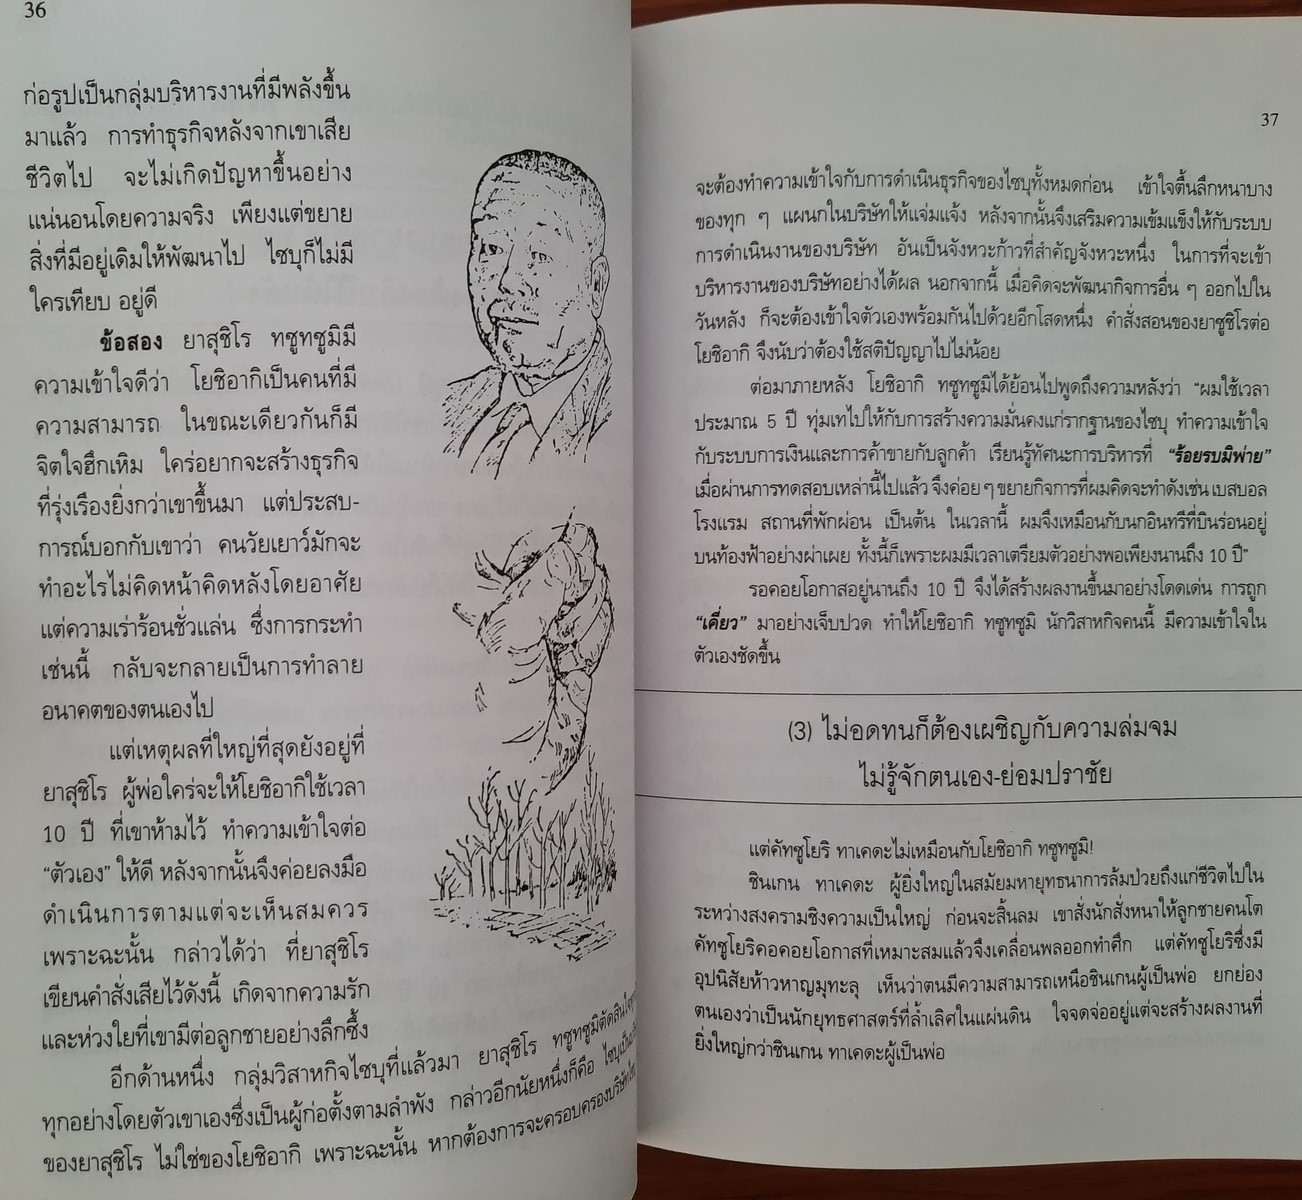 36
ก่อรูปเป็นกลุ่มบริหารงานที่มีพลังขึ้น
มาแล้ว การทำธุรกิจหลังจากเขาเสีย
ชีวิตไป จะไม่เกิดปัญหาขึ้นอย่าง
แน่นอนโดยความจริง เพียงแต่ขยาย
สิ่งที่มีอยู่เดิมให้พัฒนาไป ไซบุก็ไม่มี
ใครเทียบ อยู่ดี
ข้อสอง ยาสุชิโร ทซูทซูมิมี
ความเข้าใจดีว่า โยชิอากิเป็นคนที่มี
ความสามารถ ในขณะเดียวกันก็มี
จิตใจฮึกเหิม ใคร่อยากจะสร้างธุรกิจ
ที่รุ่งเรืองยิ่งกว่าเขาขึ้นมา แต่ประสบ-
การณ์บอกกับเขาว่า คนวัยเยาว์มักจะ
ทำอะไรไม่คิดหน้าคิดหลังโดยอาศัย
แต่ความเร่าร้อนชั่วแล่น ซึ่งการกระทำ
เช่นนี้ กลับจะกลายเป็นการทำลาย
อนาคตของตนเองไป
แต่เหตุผลที่ใหญ่ที่สุดยังอยู่ที่
ยาสุชิโร ผู้พ่อใคร่จะให้โยชิอากิใช้เวลา
10 ปี ที่เขาห้ามไว้ ทำความเข้าใจต่อ
“ตัวเอง” ให้ดี หลังจากนั้นจึงค่อยลงมือ
ดำเนินการตามแต่จะเห็นสมควร
เพราะฉะนั้น กล่าวได้ว่า ที่ยาสุชิโร
เขียนคำสั่งเสียไว้ดังนี้ เกิดจากความรัก
และห่วงใยที่เขามีต่อลูกชายอย่างลึกซึ้ง
อีกด้านหนึ่ง กลุ่มวิสาหกิจไซบุที่แล้วมา ยาสุชิโร ทซูทซูมิตัดสินใจ
ทุกอย่างโดยตัวเขาเองซึ่งเป็นผู้ก่อตั้งตามลำพัง กล่าวอีกนัยหนึ่งก็คือ ไซบุเป็น
ของยาสุชิโร ไม่ใช่ของโยชิอากิ เพราะฉะนั้น หากต้องการจะครอบครองบริษัท
37
จะต้องทำความเข้าใจกับการดำเนินธุรกิจของไซบุทั้งหมดก่อน เข้าใจตื้นลึกหนาบาง
ของทุก ๆ แผนกในบริษัทให้แจ่มแจ้ง หลังจากนั้นจึงเสริมความเข้มแข็งให้กับระบบ
การดำเนินงานของบริษัท อันเป็นจังหวะก้าวที่สำคัญจังหวะหนึ่ง ในการที่จะเข้า
บริหารงานของบริษัทอย่างได้ผล นอกจากนี้ เมื่อคิดจะพัฒนากิจการอื่น ๆ ออกไปใน
วันหลัง ก็จะต้องเข้าใจตัวเองพร้อมกันไปด้วยอีกโสดหนึ่ง คำสั่งสอนของยาซูชิโรต่อ
โยชิอากิ จึงนับว่าต้องใช้สติปัญญาไปไม่น้อย
ต่อมาภายหลัง โยชิอากิ ทซูทซูมิได้ย้อนไปพูดถึงความหลังว่า “ผมใช้เวลา
ประมาณ 5 ปี ทุ่มเทไปให้กับการสร้างความมั่นคงแก่รากฐานของไซบุ ทำความเข้าใจ
กับระบบการเงินและการค้าขายกับลูกค้า เรียนรู้ทัศนะการบริหารที่ “ร้อยรบมิพ่าย”
เมื่อผ่านการทดสอบเหล่านี้ไปแล้ว จึงค่อย ๆ ขยายกิจการที่ผมคิดจะทำดังเช่น เบสบอล
โรงแรม สถานที่พักผ่อน เป็นต้น ในเวลานี้ ผมจึงเหมือนกับนกอินทรีที่บินร่อนอยู่
บนท้องฟ้าอย่างผ่าเผย ทั้งนี้ก็เพราะผมมีเวลาเตรียมตัวอย่างพอเพียงนานถึง 10 ปี”
รอคอยโอกาสอยู่นานถึง 10 ปี จึงได้สร้างผลงานขึ้นมาอย่างโดดเด่น การถูก
“เคี่ยว” มาอย่างเจ็บปวด ทำให้โยชิอากิ ทซูทซูมิ นักวิสาหกิจคนนี้ มีความเข้าใจใน
ตัวเองชัดขึ้น
(3) ไม่อดทนก็ต้องเผชิญกับความล่มจม
ไม่รู้จักตนเอง-ย่อมปราชัย
แต่คัทซูโยริ ทาเคดะไม่เหมือนกับโยชิอากิ ทซูทซูมิ!
ชินเกน ทาเคดะ ผู้ยิ่งใหญ่ในสมัยมหายุทธนาการล้มป่วยถึงแก่ชีวิตไปใน
ระหว่างสงครามชิงความเป็นใหญ่ ก่อนจะสิ้นลม เขาสั่งนักสั่งหนาให้ลูกชายคนโต
คัทซูโยริคอคอยโอกาสที่เหมาะสมแล้วจึงเคลื่อนพลออกทำศึก แต่คัทซูโยริซึ่งมี
อุปนิสัยห้าวหาญมุทะลุ เห็นว่าตนมีความสามารถเหนือชินเกนผู้เป็นพ่อ ยกย่อง
ตนเองว่าเป็นนักยุทธศาสตร์ที่ล้ำเลิศในแผ่นดิน ใจจดจ่ออยู่แต่จะสร้างผลงานที่
ยิ่งใหญ่กว่าชินเกน ทาเคดะผู้เป็นพ่อ